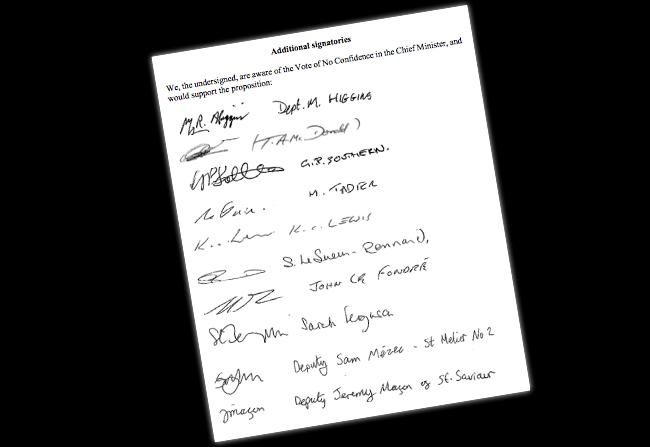 Additional signatories
We, the undersigned, are aware of the Vote of No Confidence in the Chief Minister, and
would support the proposition:
M.R. Higgins Dept. M. HIGGINS
(T.A. McDonald)
G.P. SOUTHERN.
M. TADIER
K... Lewis K.C. LEWIS
S. LeSueur-Rennard,
JOHN LE FONDRÉ
Sarah Ferguson
Deputy Sam Mézec - St Helier No 2
JMaçon Deputy Jeremy Maçon of St. Saviour